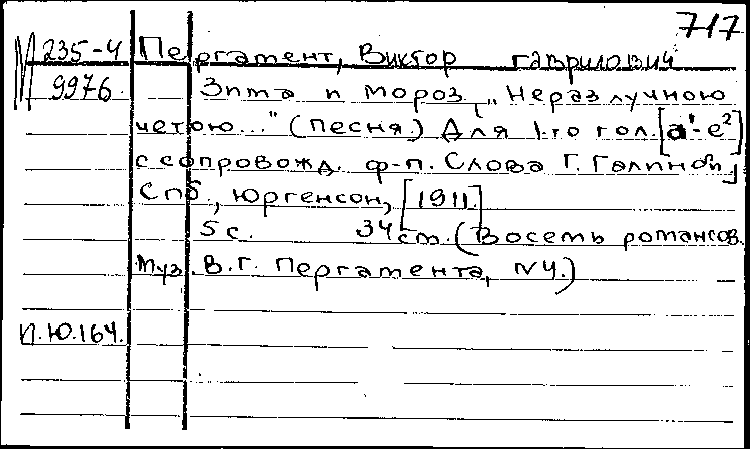 717
М 235-4 Пергамент, Виктор Гаврилович
9976 Зима и мороз „Неразлучною
четою..." (Песня.) Для 1-го гол. [a¹-e²]
с сопровожд. ф-п. Слова Г. Галиной
Спб., Юргенсон, [1911]
5 с. 34 см. (Восемь романсов.
Муз. В.Г. Пергамента, №4.)
П.Ю.164.